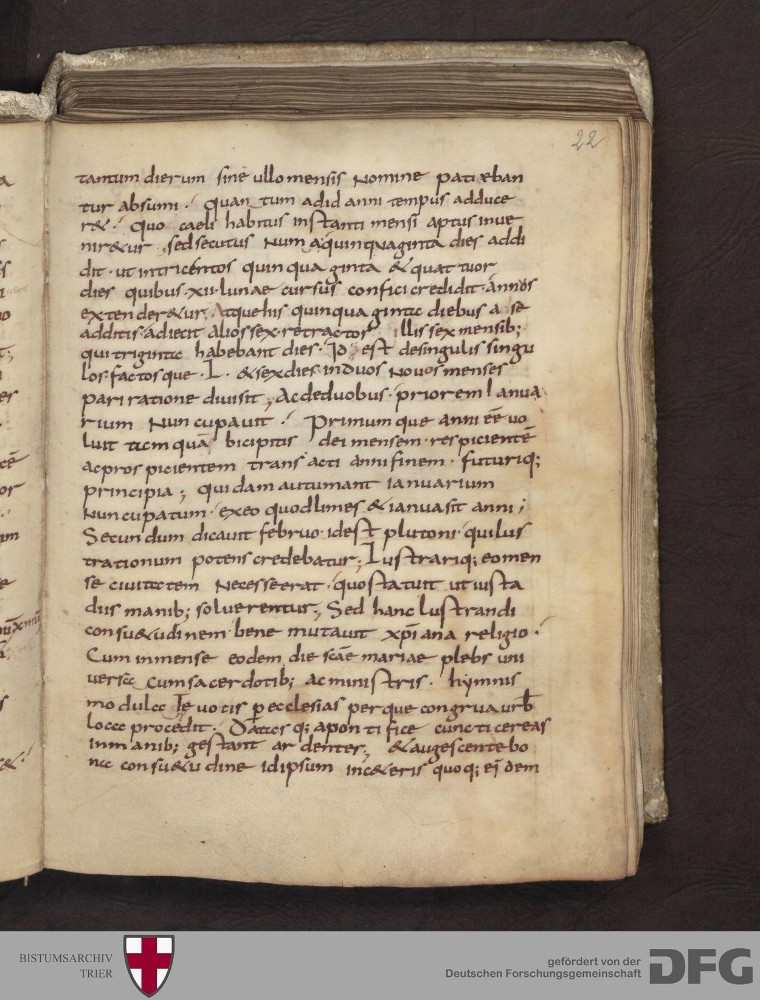 22
tantum dierum sine ullo mensis nomine patiẹban
tur absumi . quan tum adid anni tempus adduce
r& . quo caeli habitus instanti mensi aptus inue
nir&ur . sedsecutus Numa quinquaginta dies addi
dit . ut intricentos quinquaginta & quattuor
dies quibus . xii . lunae cursus confici credidit . annos
extender&ur . Atquehis quinquaginta diebus a se
additis . adiecit alios sex . retractos illis sex mensib;
qui triginta habebant dies . Id est desingulis singu
los . factosque . L . & sexdies induos Nouos menses
pari ratione diuisit , Acdeduobus . priorem Ianua
rium Nuncupauit . Primumque anni eē uo
luit tamquā bicipitis dei mensem . respicientē
acprospicientem transacti anni finem . futuriq;
principia ; quidam autumant ianuarium
Nuncupatum . exeo quodlimes & ianuasit anni ;
Secundum dicauit februo . idest plutoni . quilus
trationum potens credebatur ; Lustrariq; eomen
se ciuitatem Necesseerat . quostatuit utiusta
diis manib; soluerentur ; Sed hanc lustrandi
consu&udinem bene mutauit xp̄iana religio .
Cum inmense eodem die scāe mariae plebs uni
uersa cumsacerdotib; acministris . hymnis
modulatę uocis p ecclesias perque congrua urb̄
loca procedit . Datasq; apontifice cuncti cereas
inmanib; gestant ardentes ; & augescente bo
na consu&udine idipsum inc&eris quoq; eidem
BISTUMSARCHIV
TRIER
gefördert von der
Deutschen Forschungsgemeinschaft
DFG